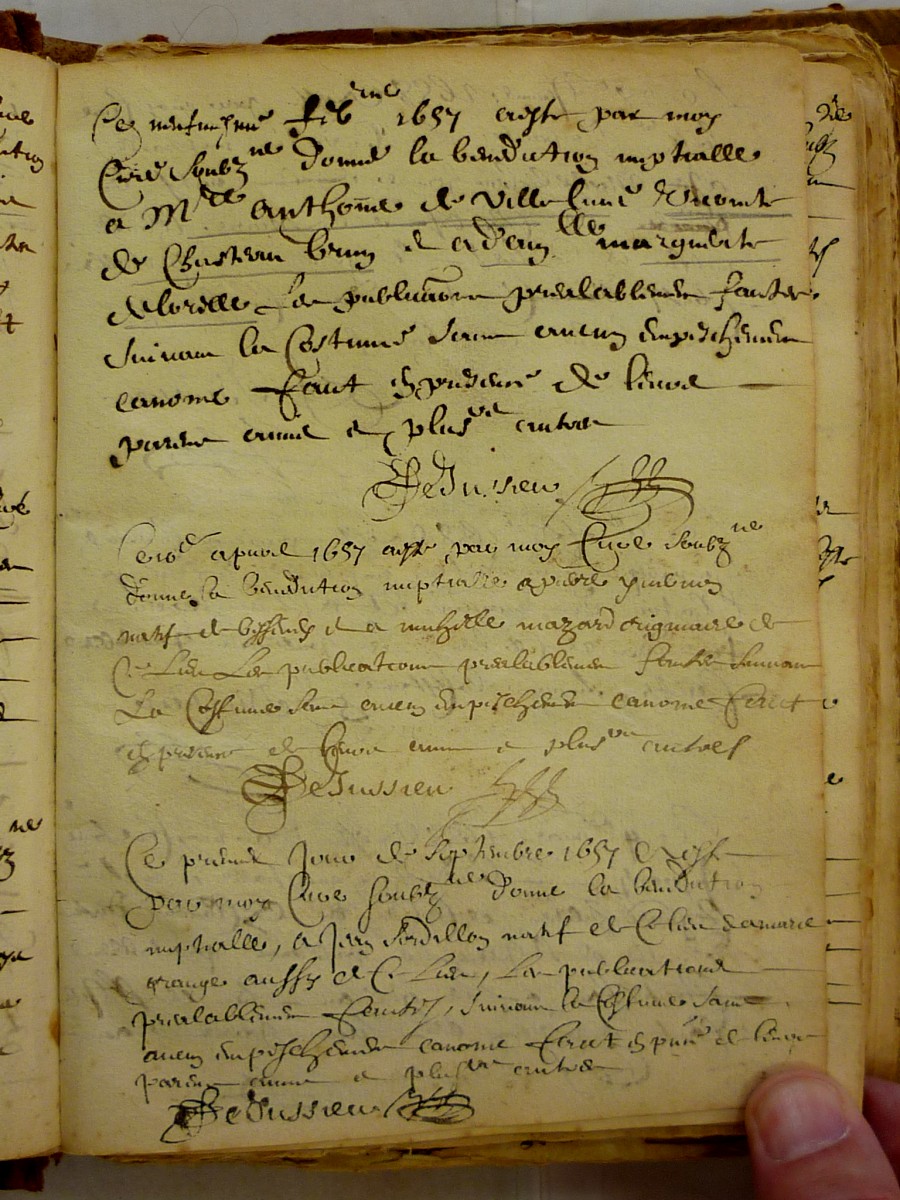 Ce neufiesme feb^rine 1657 a este par moy
Curé soubz^ne donné la benediction nuptialle
a M^re anthoine de Ville lume Viconte
de Chasteau brun et a dam^lle marguerite
de les publications prealablement faictes
suivant la Costume sans aucun empeschement
canonic faict en presence de leurs
parens amis et plus^rs autres
DeJussieu
Ce 10^e apvril 1657 a este par moy Curé soubz^ne
donné la benediction nuptialle a pierre
natif de et a michelle mazard originaire de
Ce Lieu Les publications prealablement faictes suivant
La Costume sans aucun empeschement canonic faict
en presence de leurs amis et plus^rs autres
DeJussieu
Ce premier Jour de Septembre 1657 a este
par moy Curé soubz^ne donné la benediction
nuptialle, a Jean natif de Ce lieu et a marie
aussy de Ce Lieu, Les publications
prealablement faictes, suivant la Costume sans
aucun empeschement canonic faict en pn^ce de leurs
parens amis et plus^rs autres
DeJussieu